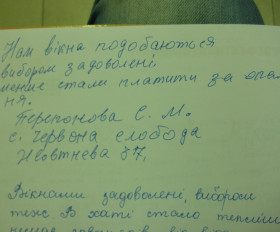 Нам вікна подобаються
вибором задоволені.
менше стали платити за опа
ня.
Перепонова Є. М.
с. Червона слобода
Жовтнева 57,
Вікнами задоволені, вибором
теж. В хаті стало тепліш